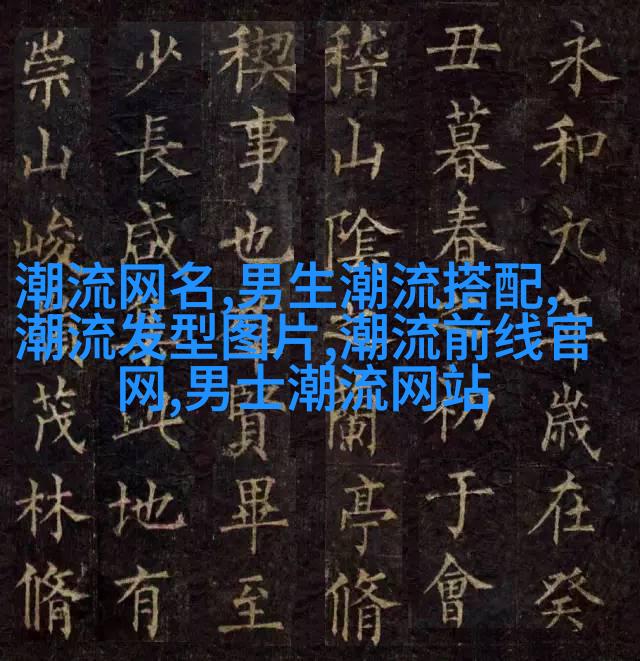 潮流网名,男生潮流搭配,
潮流发型图片,潮流前线官
网,男士潮流网站
永和九年歲在癸
丑暮春初于會
稽山陰蘭亭脩
稧事也賢畢至
少長咸此地有
崇山峻茂林脩